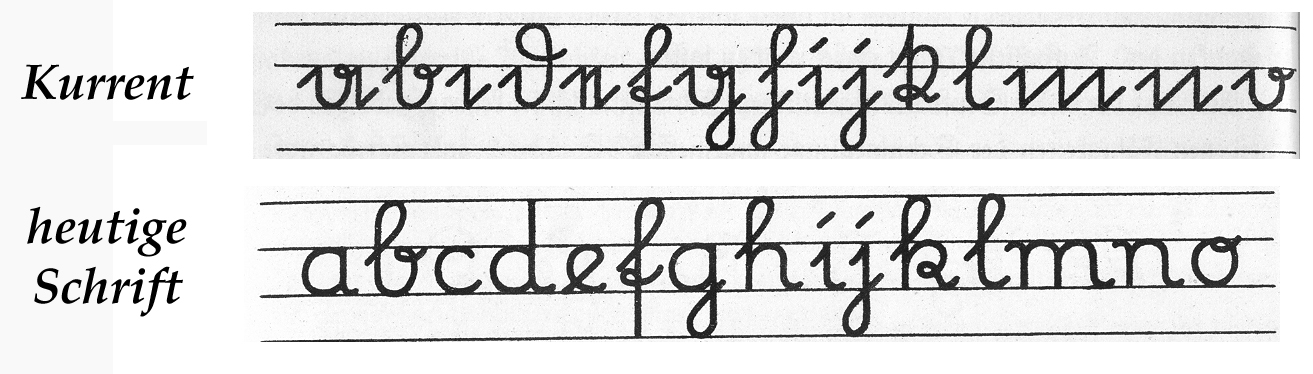 Kurrent
abcdefghijklmno
heutige
Schrift
abcdefghijklmno